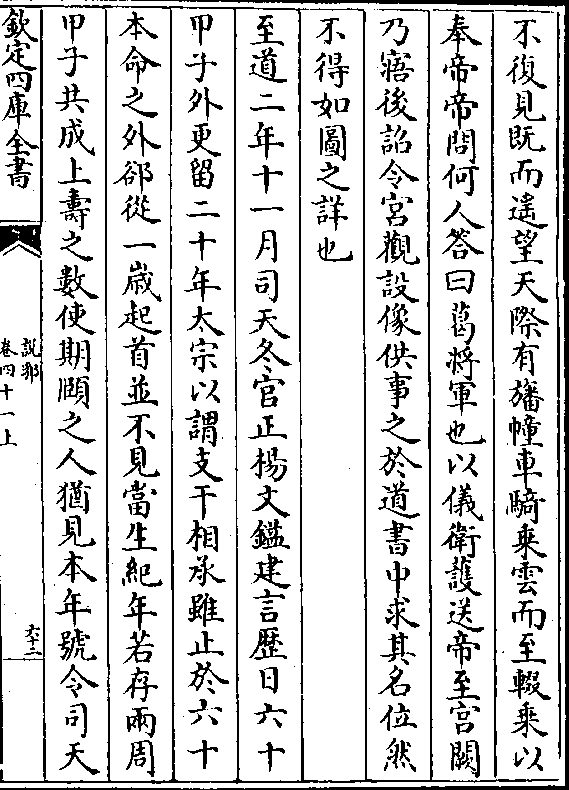 不復見既而遙望天際有旛幢車騎乘雲而至輟乘以
奉帝帝問何人答曰葛將軍也以儀衛護送帝至宮闕
乃寤後詔令宮觀設像供事之於道書中求其名位然
不得如圖之詳也
至道二年十一月司天冬官正楊文鎰建言歷日六十
甲子外更留二十年太宗以謂支干相承雖止於六十
本命之外郤從一歲起首並不見當生紀年若存兩周
甲子共成上壽之數使期頤之人猶見本年號令司天
欽定四庫全書
說郛
卷四十一上
六十三